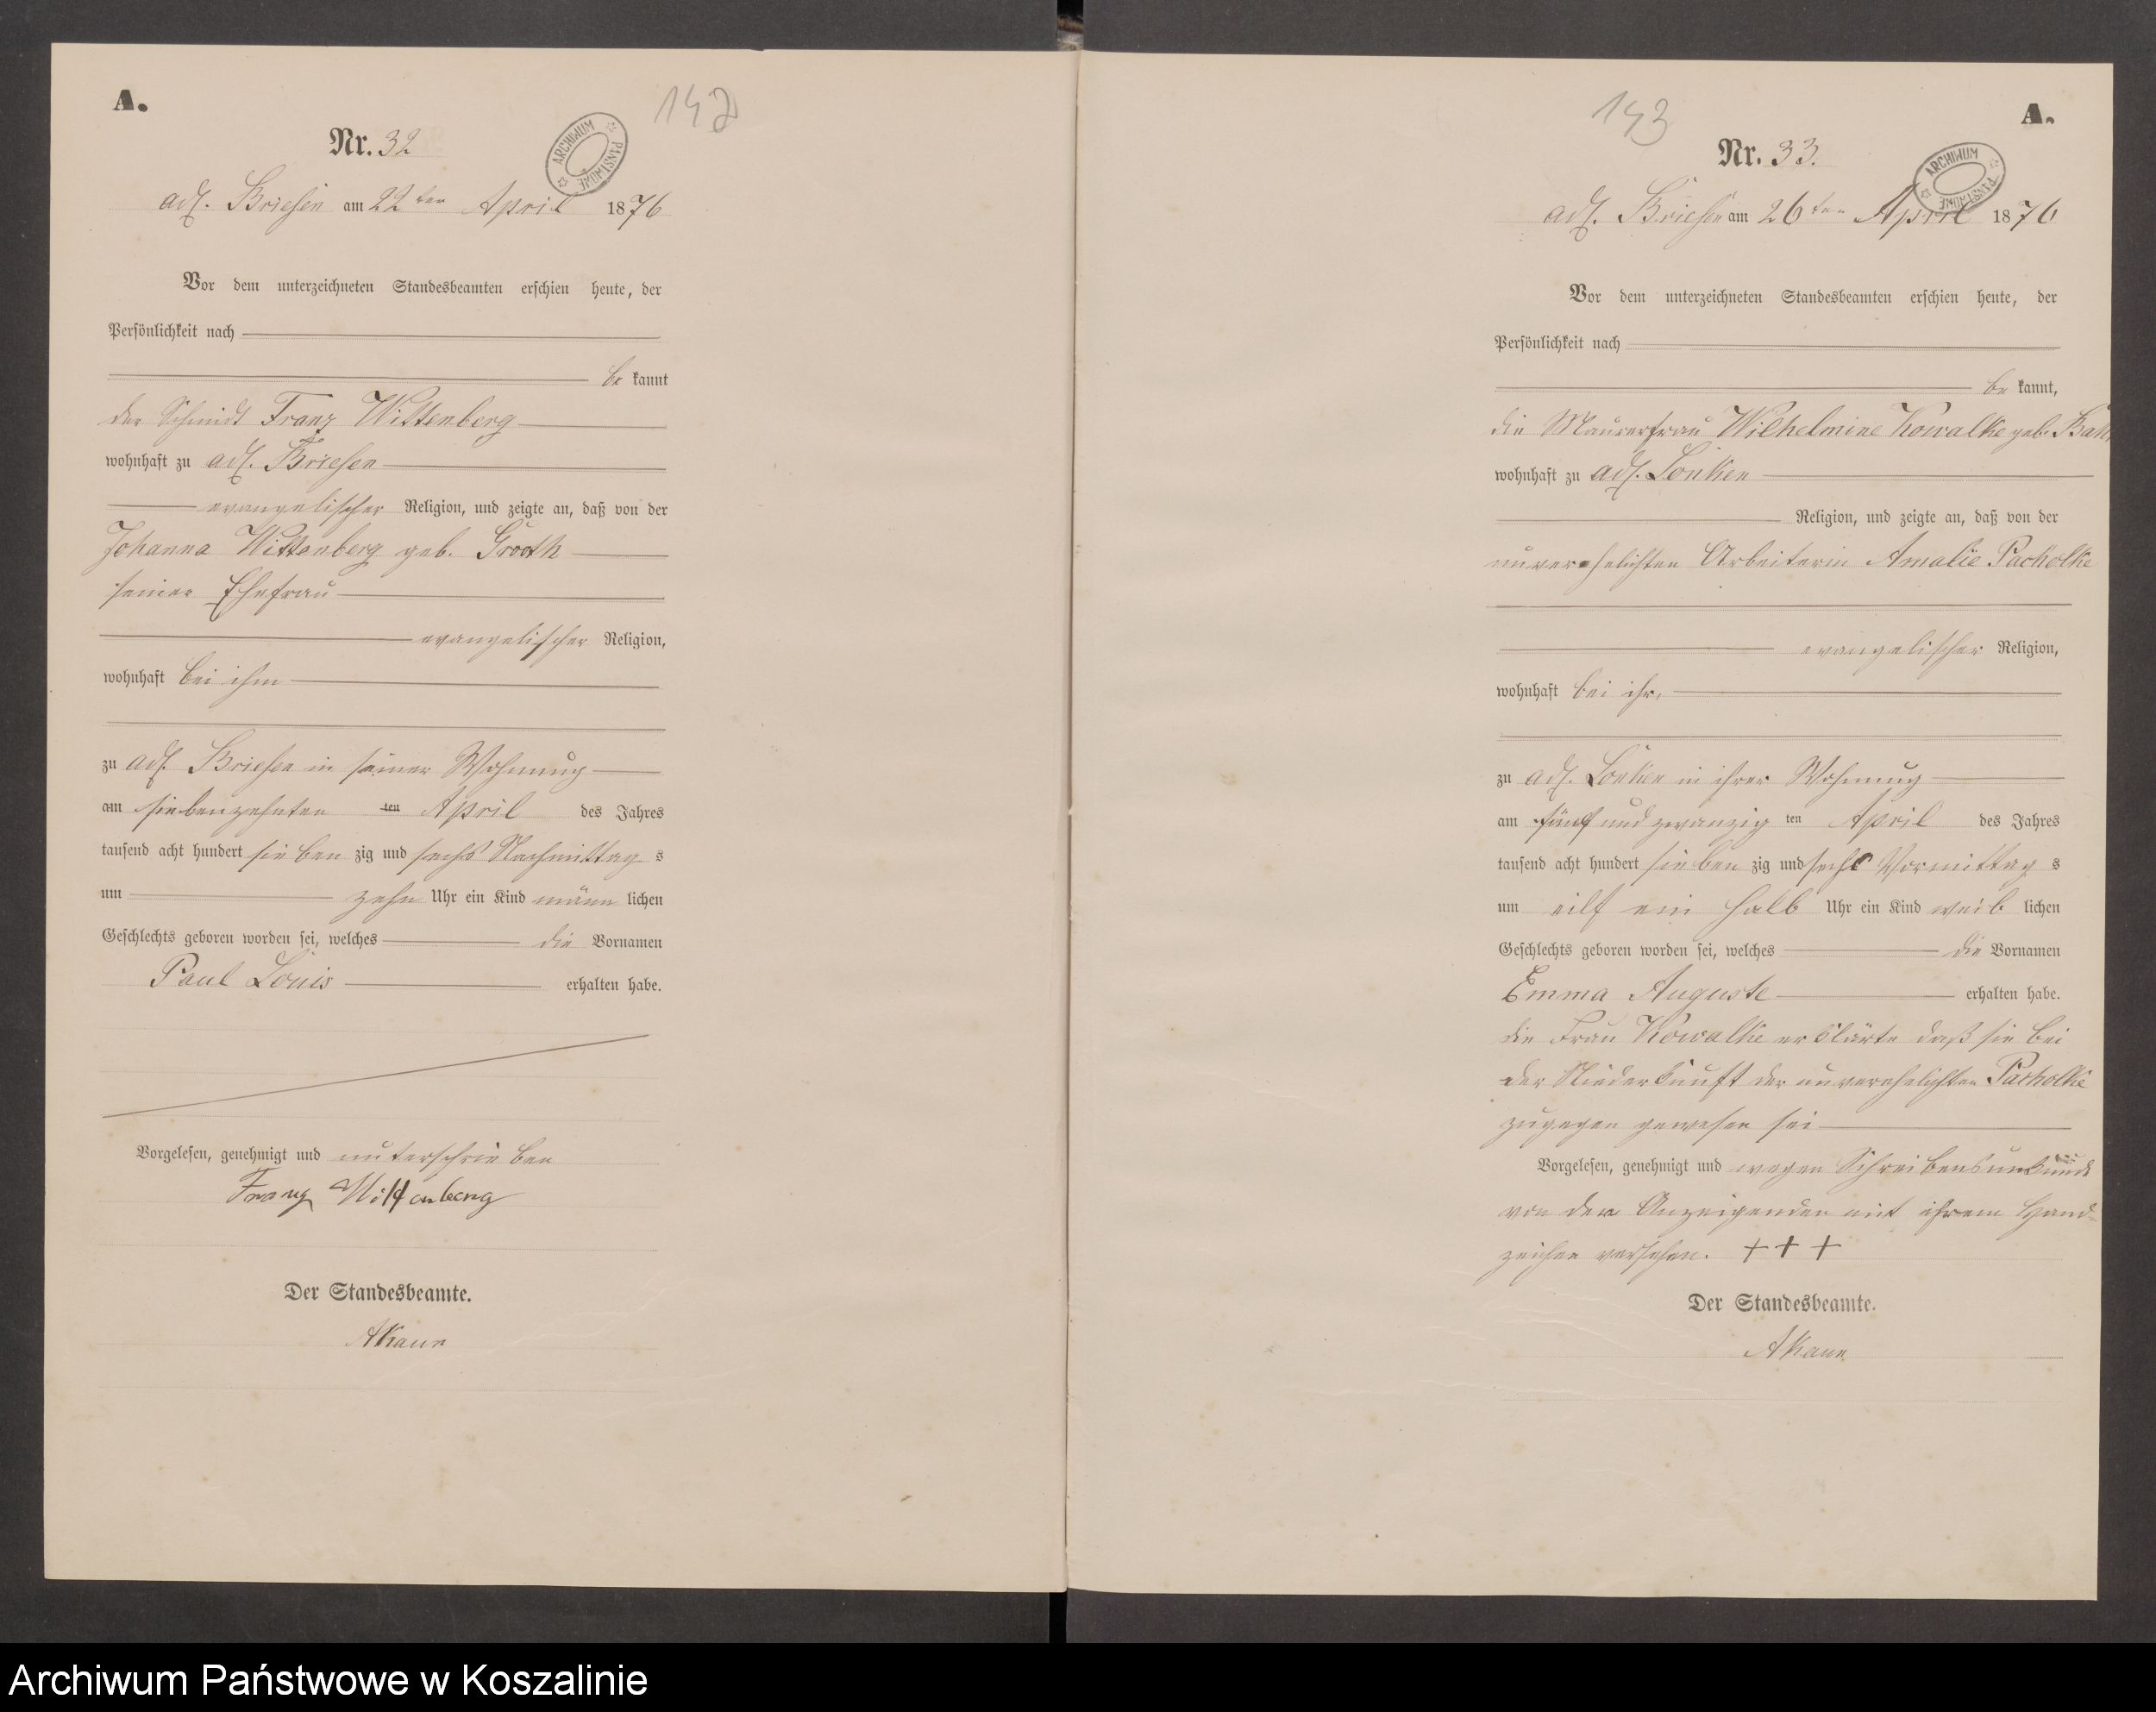 A.
142
Nr. 32
ARCHIWUM PAŃSTWOWE
adl. Briesen am 22ten April 1876
Vor dem unterzeichneten Standesbeamten erschien heute, der
Persönlichkeit nach
be kannt
der Schmidt Franz Wittenberg
wohnhaft zu adl. Briesen
evangelischer Religion, und zeigte an, daß von der
Johanna Wittenberg geb. Grooth
seiner Ehefrau
evangelischer Religion,
wohnhaft bei ihm
zu adl. Briesen in seiner Wohnung
am siebenzehnten ten April des Jahres
tausend acht hundert sieben zig und sechs Nachmittag s
um zehn Uhr ein Kind männ lichen
Geschlechts geboren worden sei, welches die Vornamen
Paul Louis erhalten habe.
Vorgelesen, genehmigt und unterschrieben
Franz Wittenberg
Der Standesbeamte.
AKaun
143
A.
Nr. 33.
ARCHIWUM PAŃSTWOWE
adl. Briesen am 26ten April 1876
Vor dem unterzeichneten Standesbeamten erschien heute, der
Persönlichkeit nach
be kannt,
die Maurerfrau Wilhelmine Kowalke geb.
wohnhaft zu adl. Lonken
Religion, und zeigte an, daß von der
unverehelichten Arbeiterin Amalie Pacholke
evangelischer Religion,
wohnhaft bei ihr,
zu adl. Lonken in ihrer Wohnung
am fünf und zwanzig ten April des Jahres
tausend acht hundert sieben zig und sechs Vormittag s
um eilf ein halb Uhr ein Kind weib lichen
Geschlechts geboren worden sei, welches die Vornamen
Emma Auguste erhalten habe.
die Frau Kowalke erklärte daß sie bei
der Niederkunft der unverehelichten Pacholke
zugegen gewesen sei
Vorgelesen, genehmigt und wegen Schreibensunkunde
von der Anzeigenden mit ihrem Hand-
zeichen versehen. +++
Der Standesbeamte.
AKaun
Archiwum Państwowe w Koszalinie